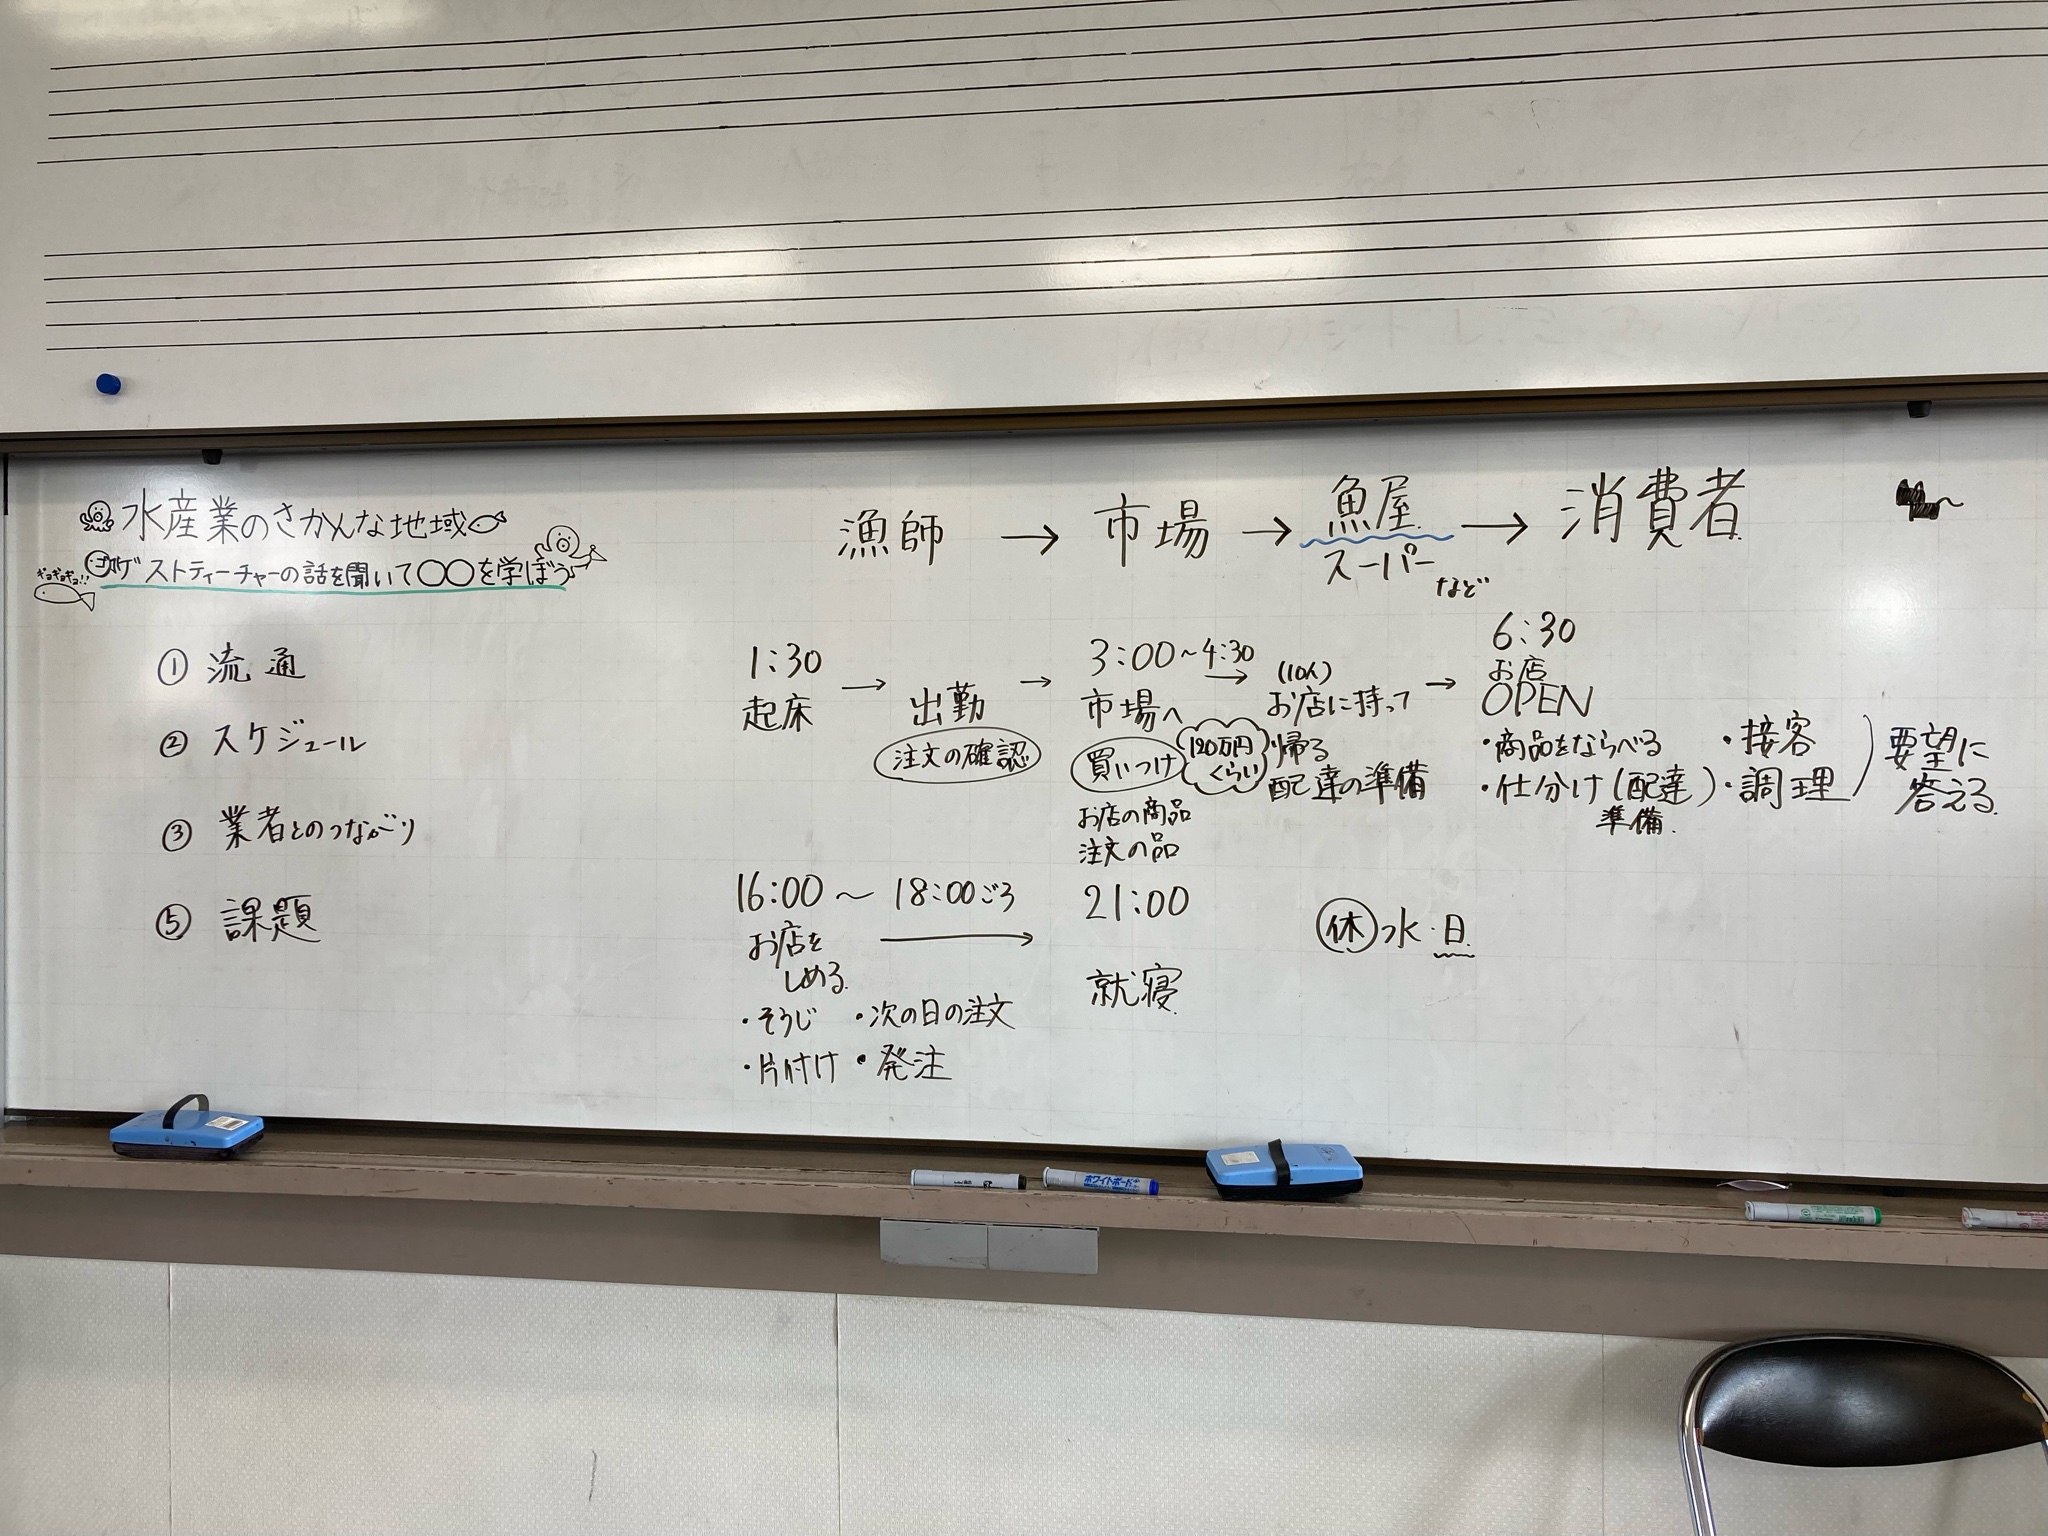 水産業のさかんな地域
ゲストティーチャーの話を聞いて○○を学ぼう
ギョギョギョ!!
① 流通
② スケジュール
③ 業者とのつながり
⑤ 課題
漁師 → 市場 → 魚屋 → 消費者
スーパー
など
1:30
起床
→
出勤
注文の確認
→
3:00～4:30
市場へ
買いつけ
120万円
くらい
お店の商品
注文の品
→
(10人)
お店に持って
帰る
配達の準備
→
6:30
お店
OPEN
・商品をならべる
・仕分け(配達)
準備
・接客
・調理
要望に
答える
16:00 ～ 18:00ごろ
お店を
しめる
・そうじ ・次の日の注文
・片付け ・発注
→
21:00
就寝
休 水・日
ホワイトボード